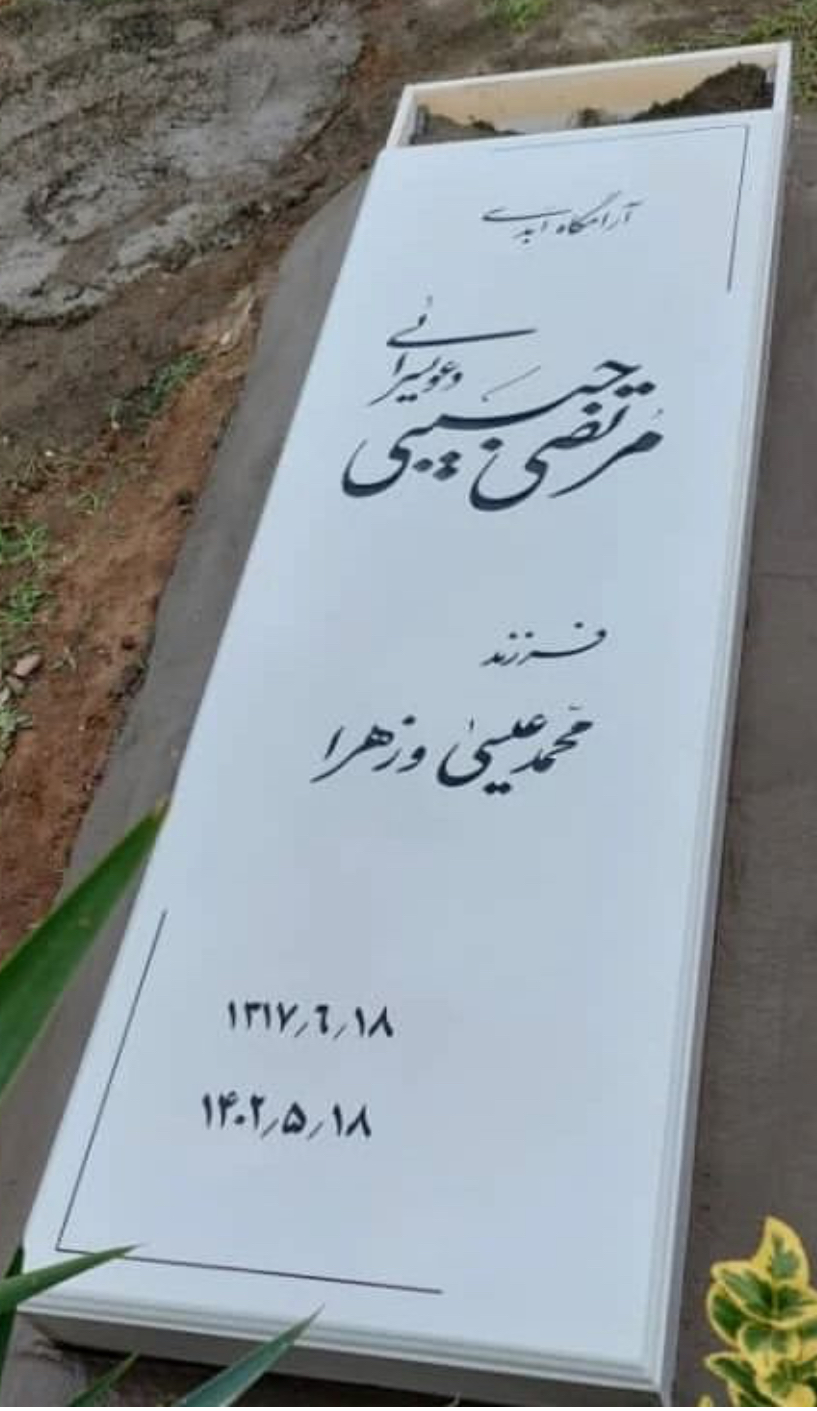 آرامگاه ابدی
مرتضی حبیبی دعویسرائی
فرزند
محمدعیسیٰ و زهرا
۱۳۱۷٫۶٫۱۸
۱۴۰۲٫۵٫۱۸